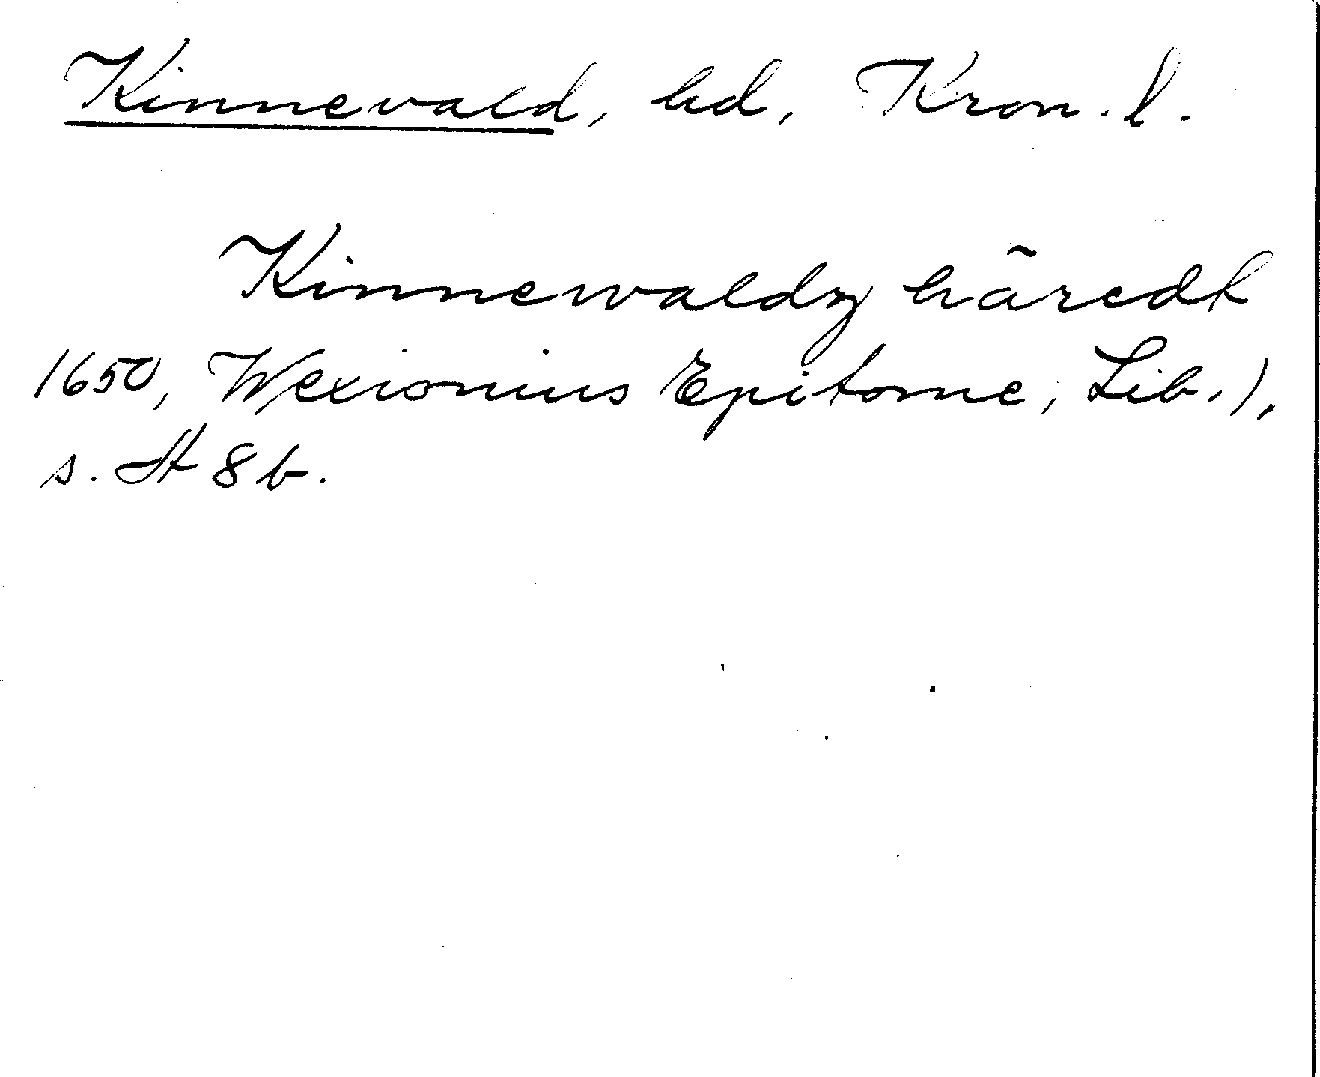 Kinnevald, hd, Kron. l.
Kinnewaldz häredt
1650, Wexionius Epitome, Lib. 1,
s. H 8 b.